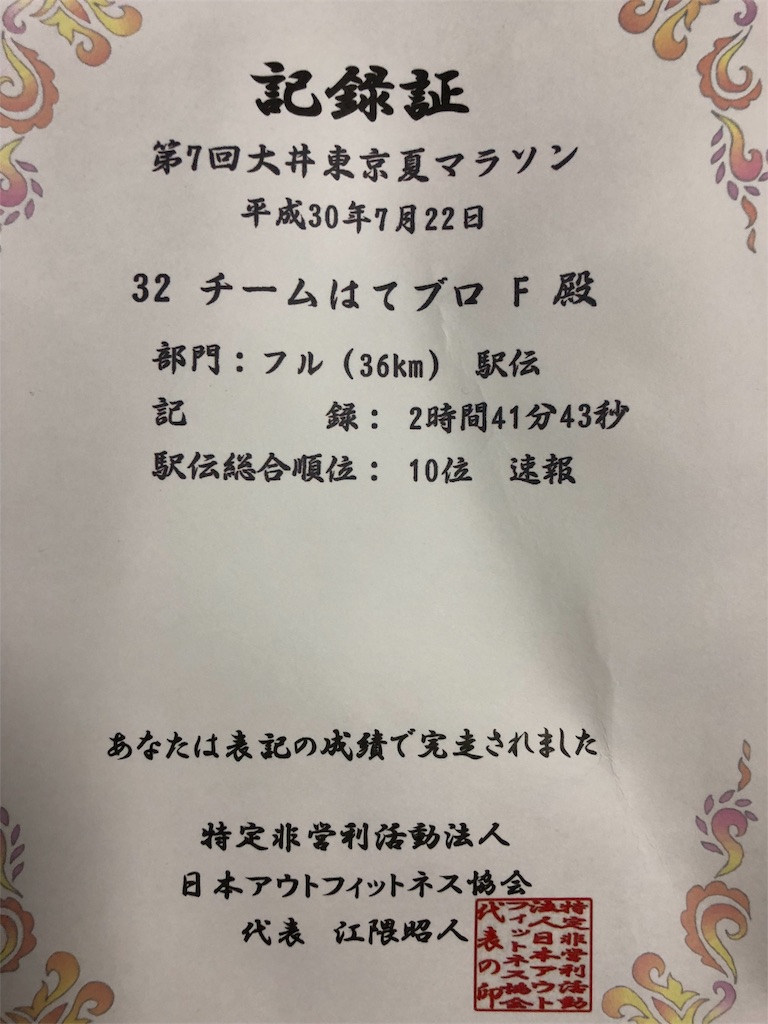 記録証
第7回大井東京夏マラソン
平成30年7月22日
32 チームはてブロ F 殿
部門：フル（36km） 駅伝
記　　　　録： 2時間41分43秒
駅伝総合順位： 10位　速報
あなたは表記の成績で完走されました
特定非営利活動法人
日本アウトフィットネス協会
代表　江隈昭人
特定非営利活動
法人日本アウト
フィットネス協会
代表の印